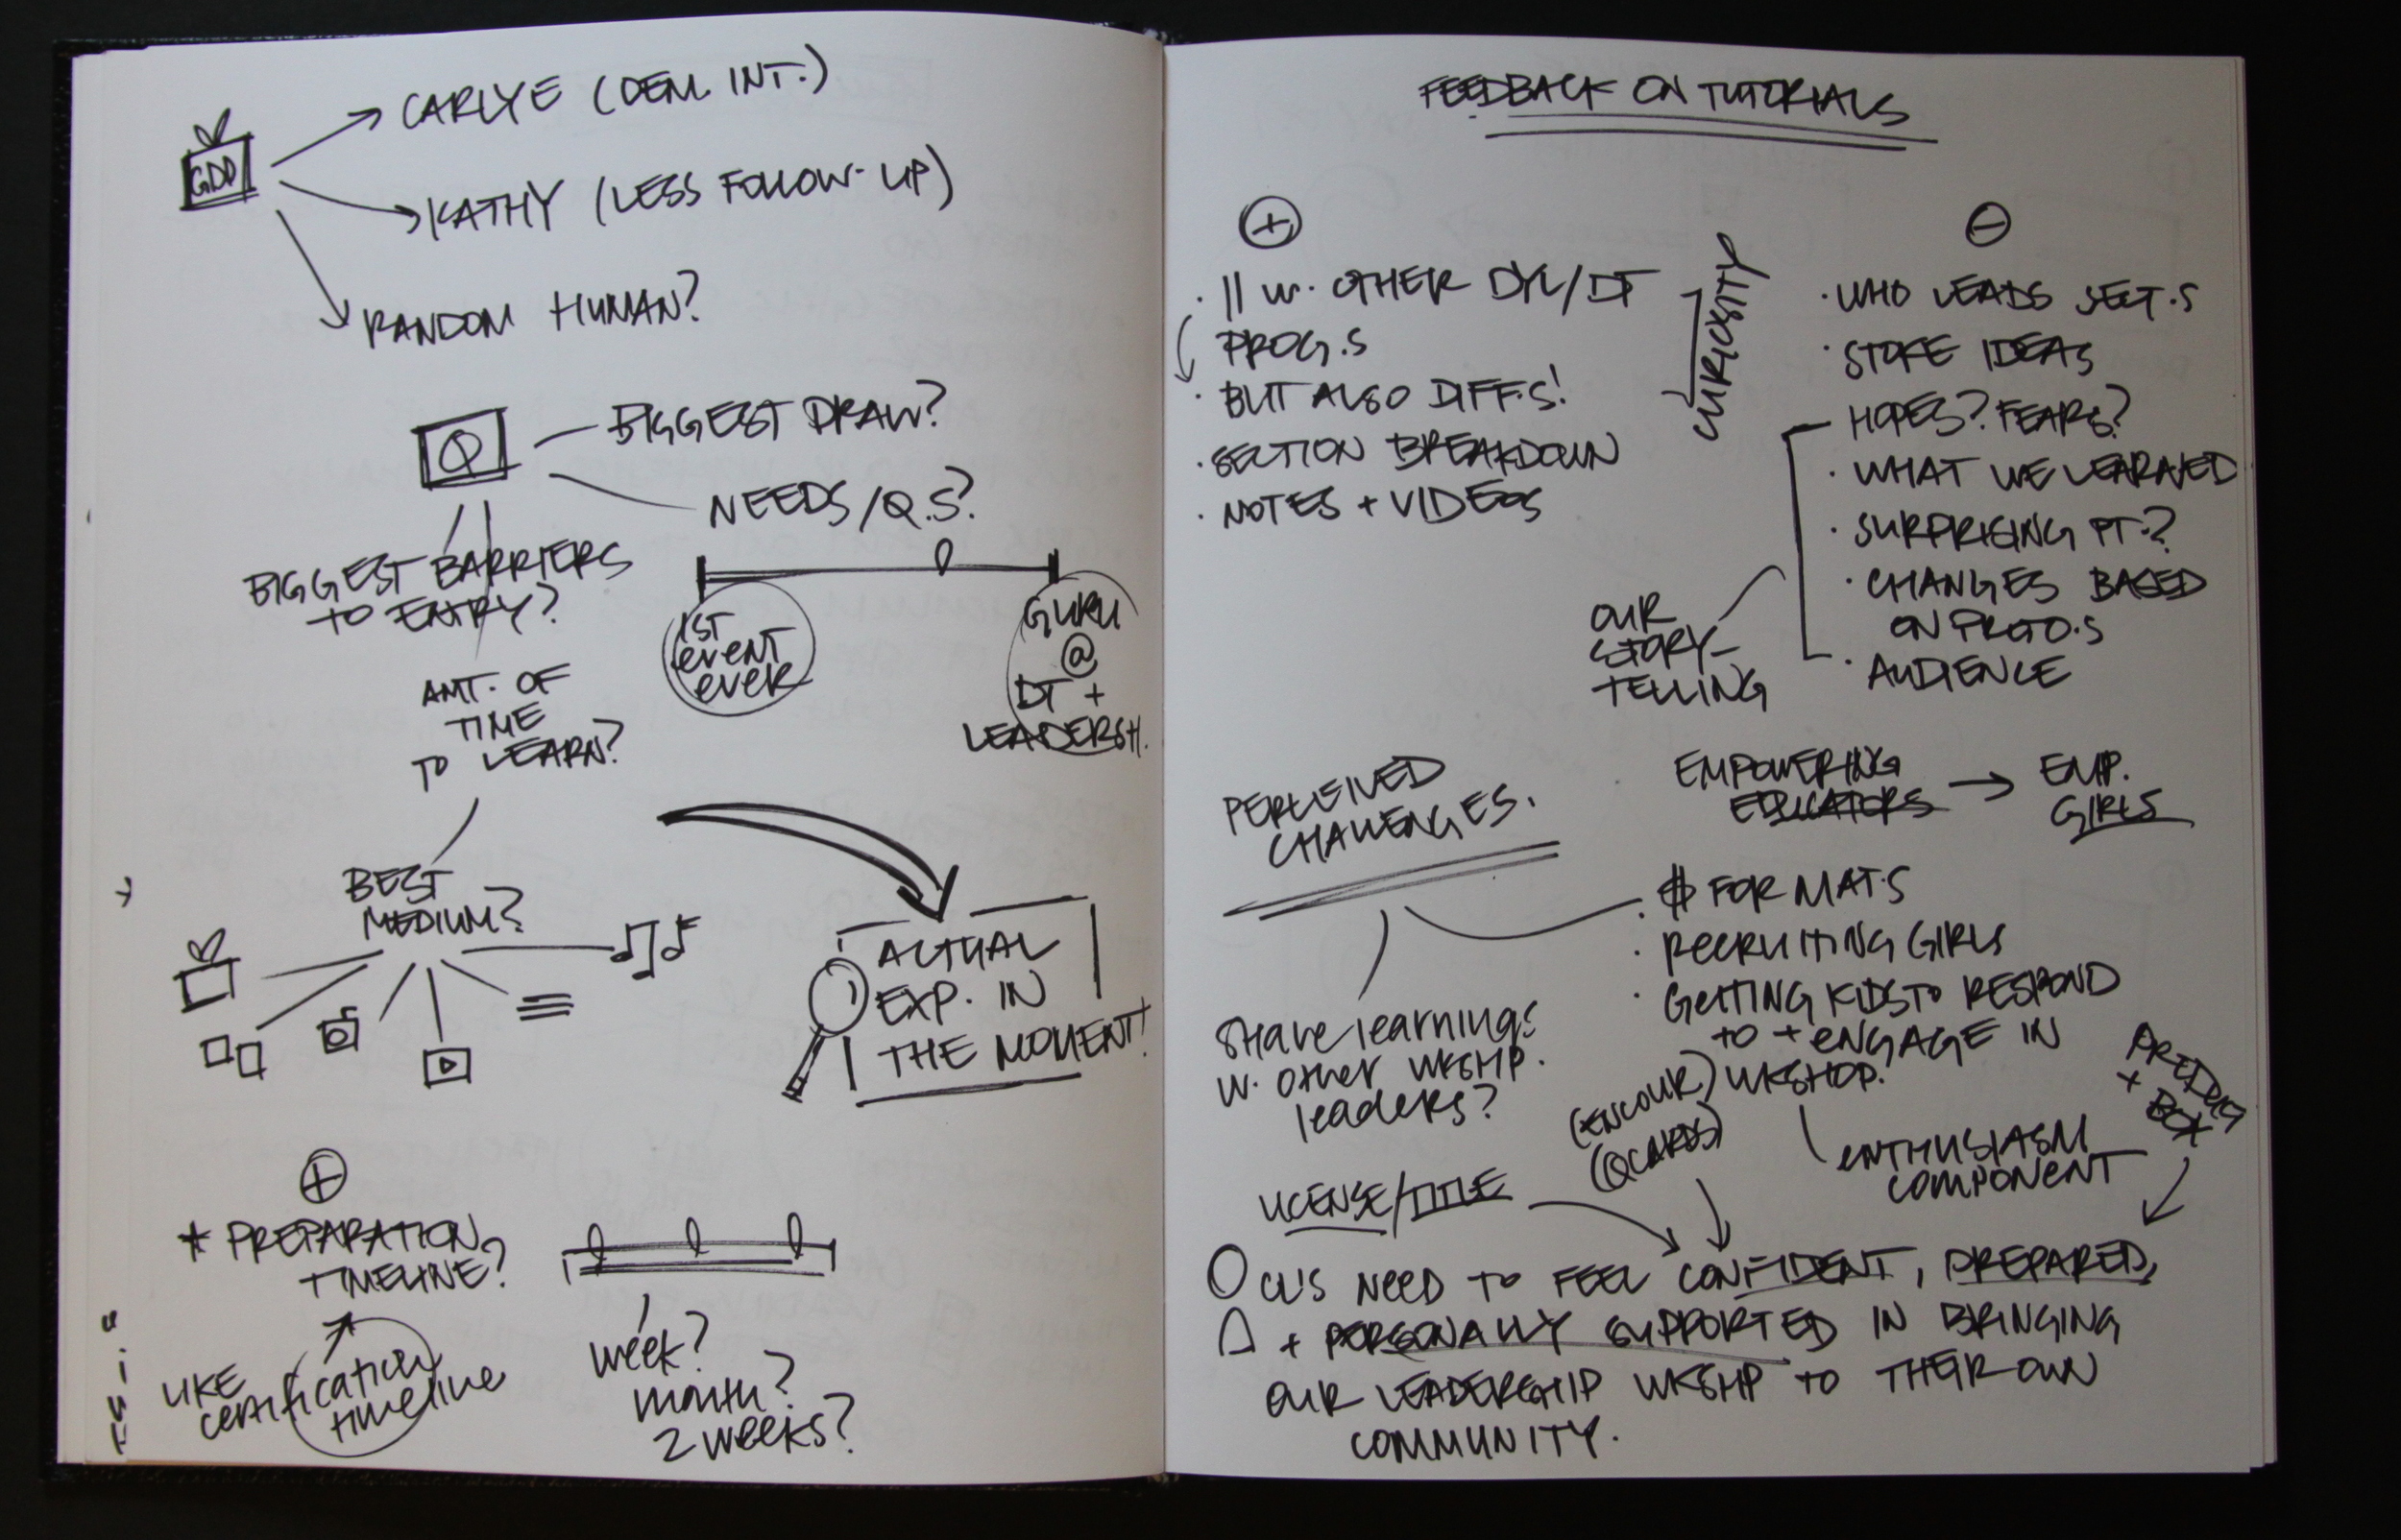 GDD
CARLYE (DEM. INT.)
KATHY (LESS FOLLOW-UP)
RANDOM HUMAN?
Q
BIGGEST DRAW?
NEEDS/Q.S?
BIGGEST BARRIERS
TO ENTRY?
1ST
EVENT
EVER
GURU
@
DT +
LEADERSH.
AMT. OF
TIME
TO LEARN?
BEST
MEDIUM?
ACTUAL
EXP. IN
THE MOMENT!
+
* PREPARATION
TIMELINE?
LIKE
certification
timeline
week?
month?
2 weeks?
FEEDBACK ON TUTORIALS
+
· || W. OTHER DYL/DT
PROG.S
· BUT ALSO DIFF.S!
· SECTION BREAKDOWN
· NOTES + VIDEOS
CURIOSITY
−
· WHO LEADS SECT.S
· STOKE IDEAS
HOPES? FEARS?
· WHAT WE LEARNED
· SURPRISING PT.?
· CHANGES BASED
ON PROTO.S
· AUDIENCE
OUR
STORY-
TELLING
EMPOWERING
EDUCATORS → EMP.
GIRLS
PERCEIVED
CHALLENGES.
· $ FOR MAT.S
· RECRUITING GIRLS
· GETTING KIDS TO RESPOND
TO + ENGAGE IN
WKSHOP.
Share learnings
w. other WKSHP.
leaders?
(ENCOUR)
(QCARDS)
ENTHUSIASM
COMPONENT
+ BOX
LICENSE/TITLE
CL'S NEED TO FEEL CONFIDENT, PREPARED,
+ PERSONALLY SUPPORTED IN BRINGING
OUR LEADERSHIP WKSHP TO THEIR OWN
COMMUNITY.